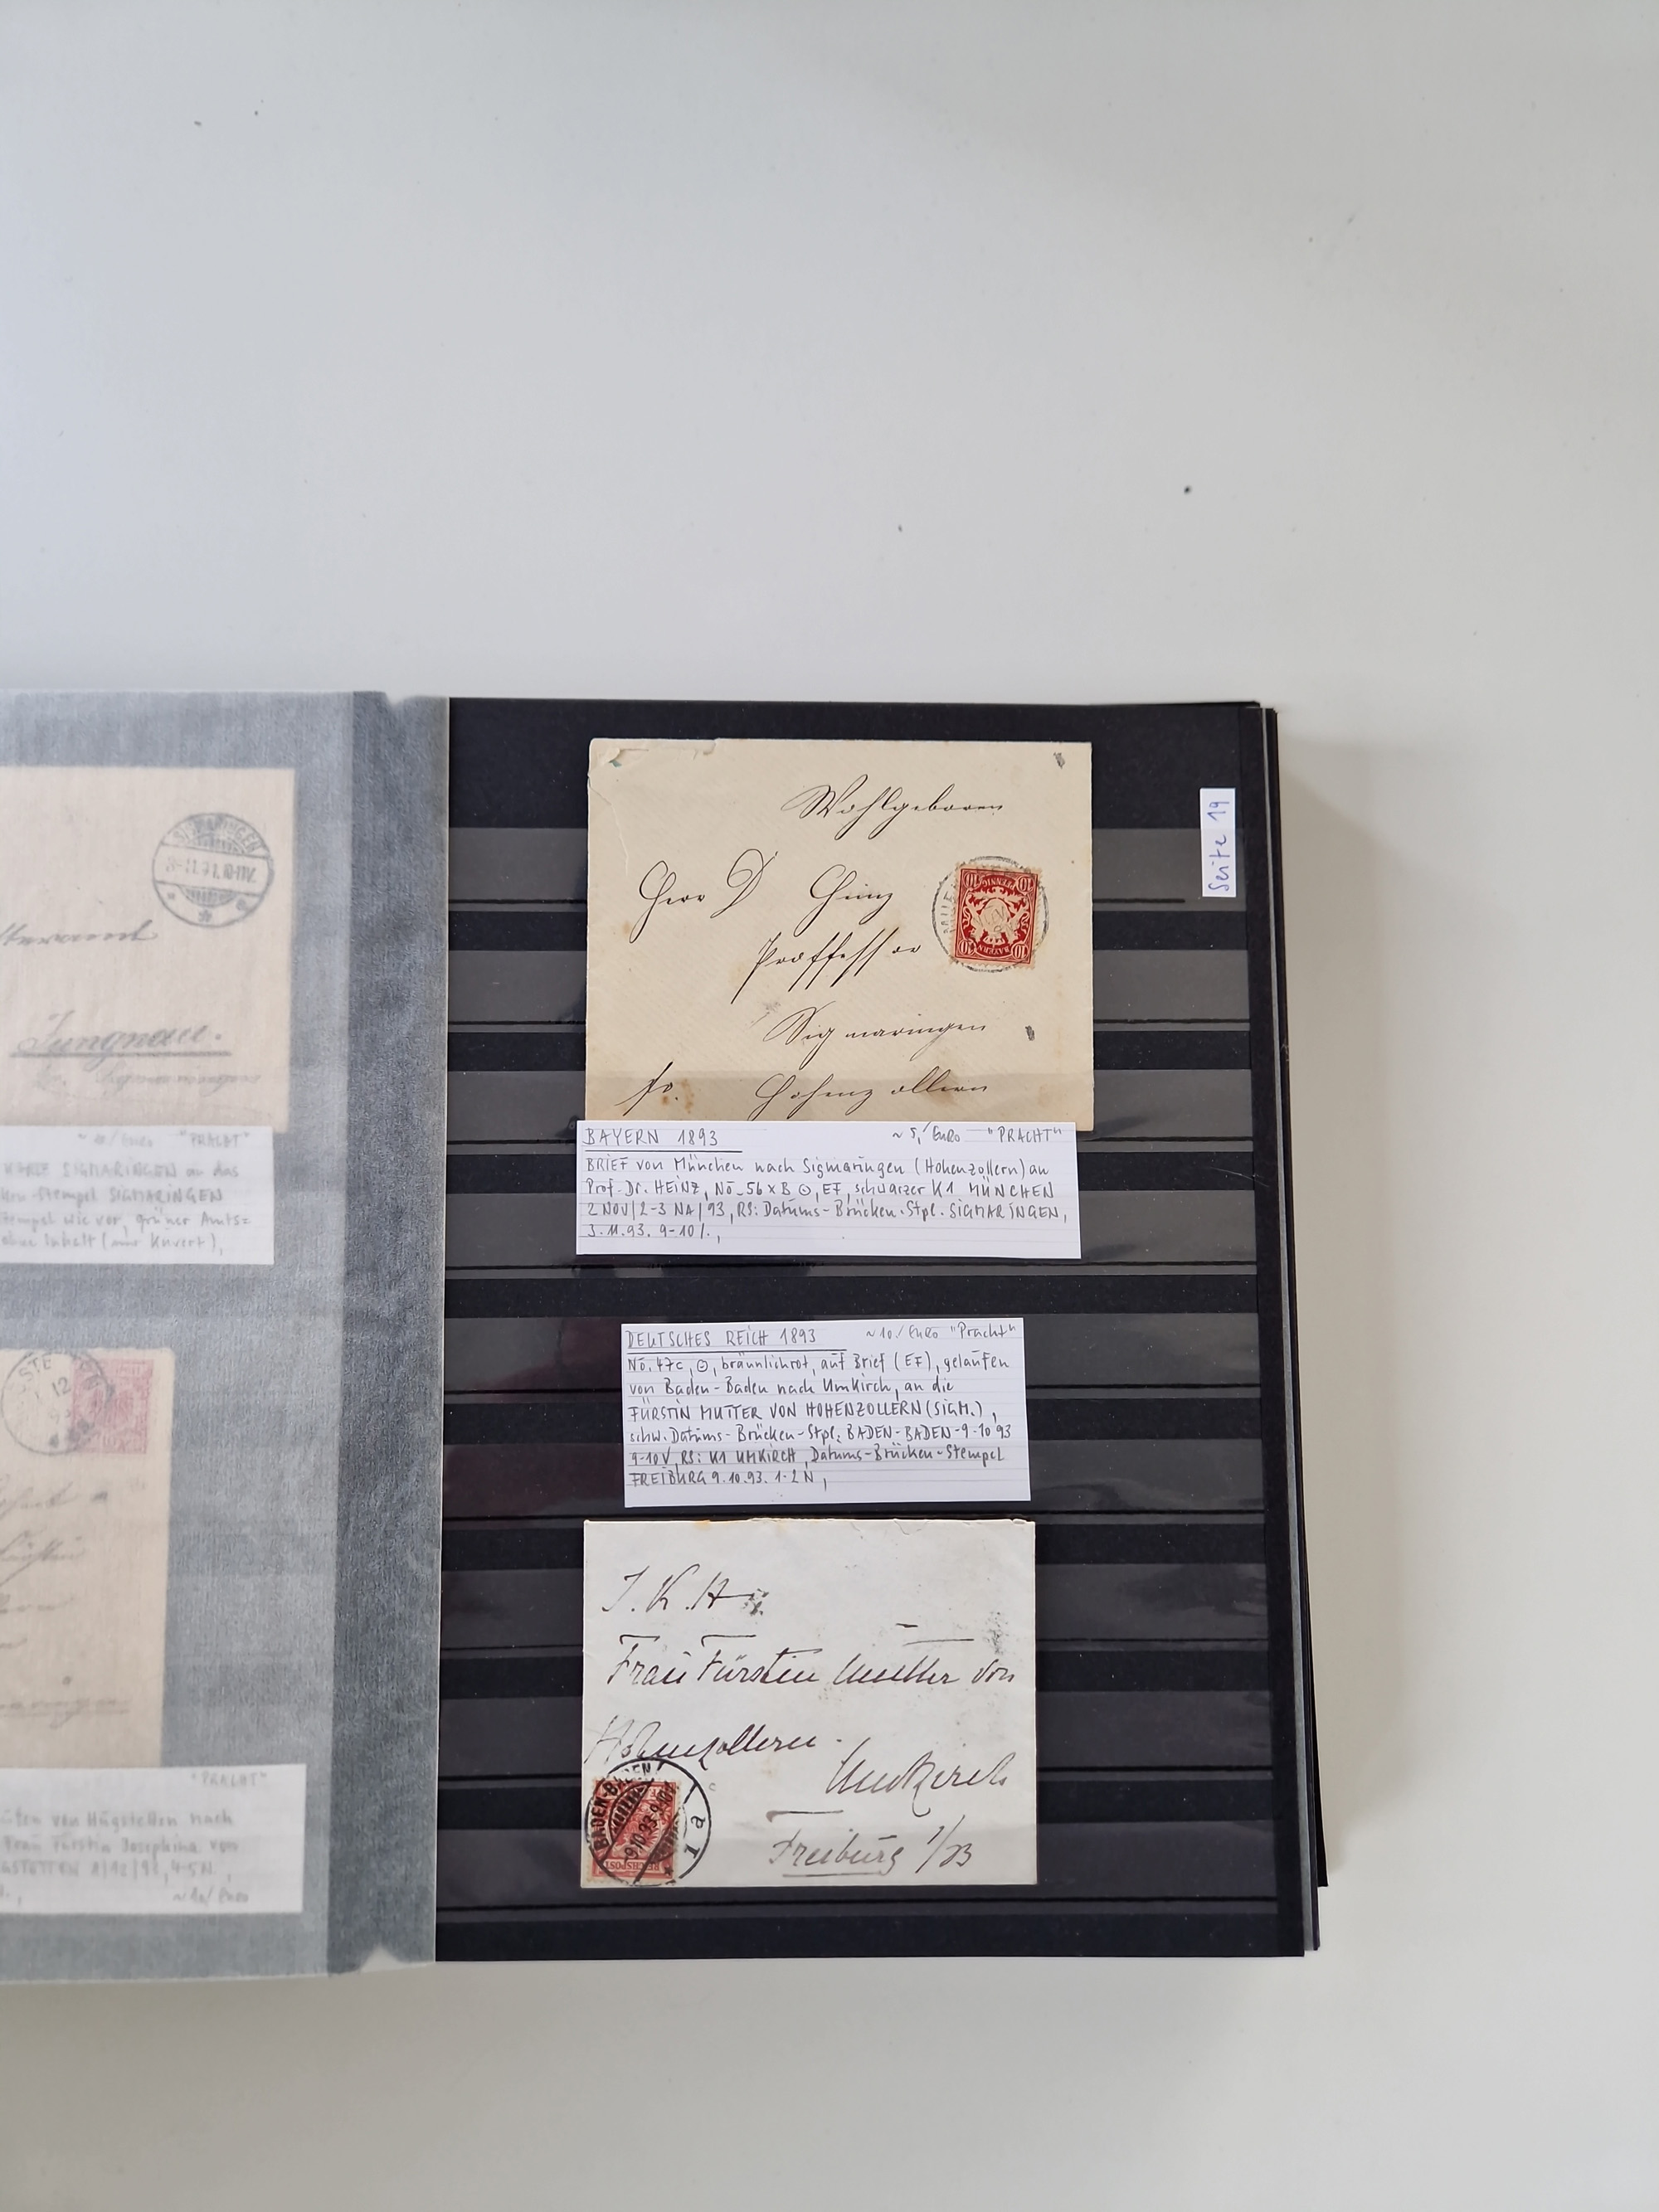 SIGMARINGEN
Jungnau.
"PRACHT"
SIGMARINGEN an das
Stempel SIGMARINGEN
stempel wie vor, grüner Amts=
ohne Inhalt (nur Kuvert),
12
"PRACHT"
von Hugstetten nach
Frau Fürstin Josephina von
4-5N,
Seite 19
Wohlgeboren
Herr D Heinz
Proffessor
Sigmaringen
fr. Hohenzollern
10 PFENNIG 10
10 BAYERN 10
BAYERN 1893 ~5,- Euro "PRACHT"
BRIEF von München nach Sigmaringen (Hohenzollern) an
Prof. Dr. HEINZ, No. 56xB ⊙, EF, schwarzer K1 MÜNCHEN
2 NOV/2-3 NA/93, RS: Datums-Brücken-Stpl. SIGMARINGEN,
3.11.93. 9-10/.,
DEUTSCHES REICH 1893 ~10.- Euro "Pracht"
No. 47c, ⊙, bräunlichrot, auf Brief (EF), gelaufen
von Baden-Baden nach Umkirch, an die
FÜRSTIN MUTTER VON HOHENZOLLERN (SIGM.),
schw. Datums-Brücken-Stpl. BADEN-BADEN-9-10 93
9-10V, RS: K1 UMKIRCH, Datums-Brücken-Stempel
FREIBURG 9.10.93. 1-2N,
I. K. H.
Frau Fürstin Mutter von
Hohenzollern.
Umkirch
Freiburg i/B
BADEN-BADEN
9.10.93.9-10V
1a
REICHSPOST